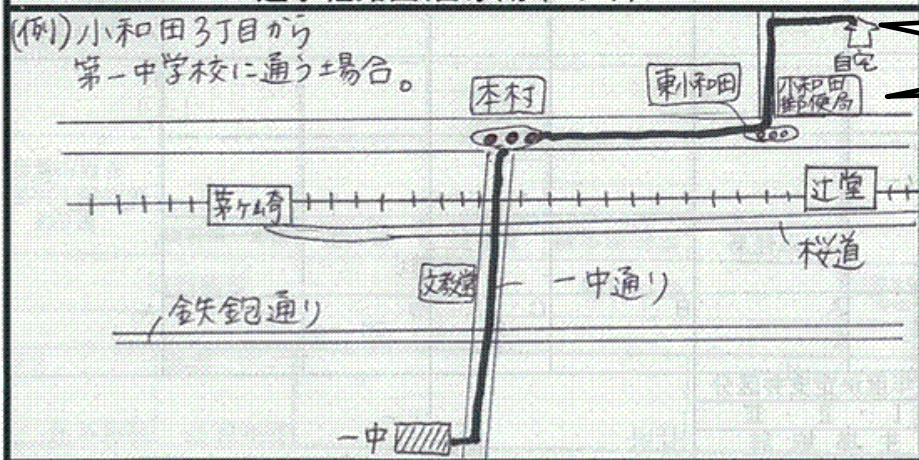 (例)小和田3丁目から
第一中学校に通う場合。
自宅
本村
東小和田
小和田
郵便局
茅ケ崎
辻堂
桜道
文教堂
一中通り
鉄砲通り
一中